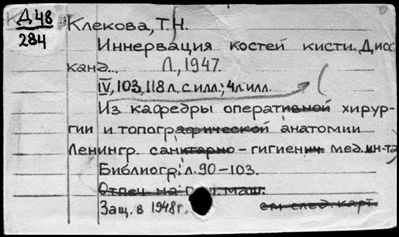 Д 48
284
Клекова, Т.Н.
Иннервация костей кисти. Дисс.
канд... Л, 1947.
IV, 103, 118 л. с илл.; 4 л. илл.
Из кафедры оперативной хирур-
гии и топографической анатомии
Ленингр. санитарно-гигиенич мед. ин-та
Библиогр.: л. 90-103.
Отпеч. на пиш. маш.
Защ. в 1948 г. см след. карт.